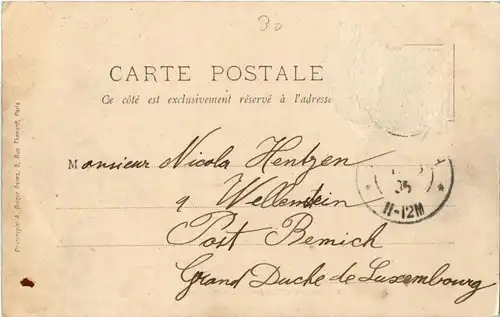 30
CARTE POSTALE
Ce côté est exclusivement réservé à l'adresse
Monsieur Nicola Hentzen
à Wellenstein
Post Bemich
Grand Duche de Luxembourg
05
11-12M
Phototypie A. Berger frères, 9, Rue Thénard, Paris